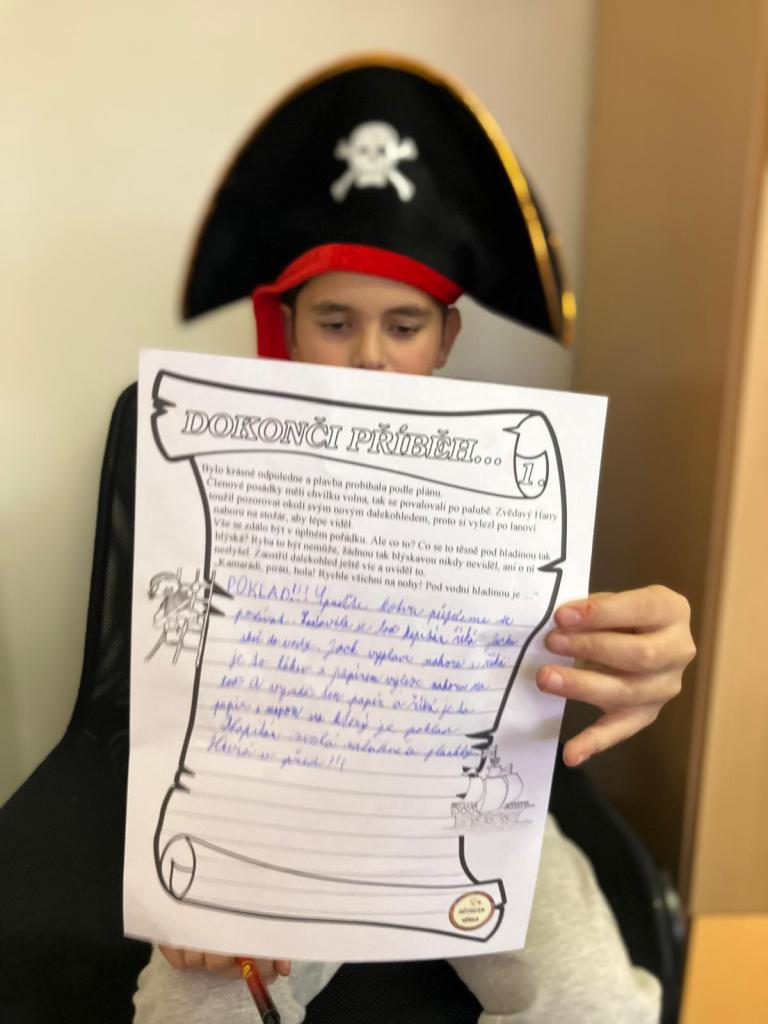 DOKONČI PŘÍBĚH...
1.
Bylo krásné odpoledne a plavba probíhala podle plánu.
Členové posádky měli chvilku volna, tak se povalovali po palubě. Zvědavý Harry
toužil pozorovat okolí svým novým dalekohledem, proto si vylezl po lanoví
nahoru na stožár, aby lépe viděl.
Vše se zdálo být v úplném pořádku. Ale co to? Co se to těsně pod hladinou tak
blýská? Ryba to být nemůže, žádnou tak blýskavou nikdy neviděl, ani o ní
neslyšel. Zaostřil dalekohled ještě víc a uviděl to.
„Kamarádi, piráti, hola! Rychle všichni na nohy! Pod vodní hladinou je …"
POKLAD!!! Spusťte kotvu půjdeme se
podívat. Zastavila se loď kapitán říká Jacku
skoč do vody. Jack vyplave nahoru a říká
je to láhev s papírem vyleze nahoru na
loď. A vyndá ten papír a říká je to
papír s mapou na který je poklad
Kapitán zvolá
Hurá v před!!!